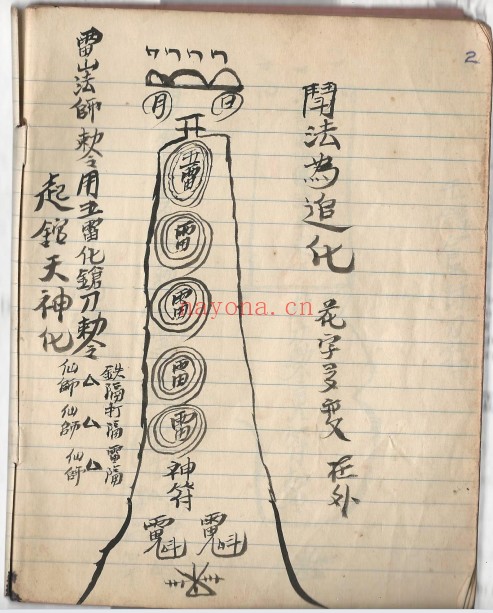 2
鬥法為追化
花字多變
在外
日 月
五雷
雷
雷
雷
雷
神符
鉄隔打隔雷隔
仙師 仙師 仙師
雷山法師 敕令用五雷化鎗刀敕令
起舘天神化
nayona.cn